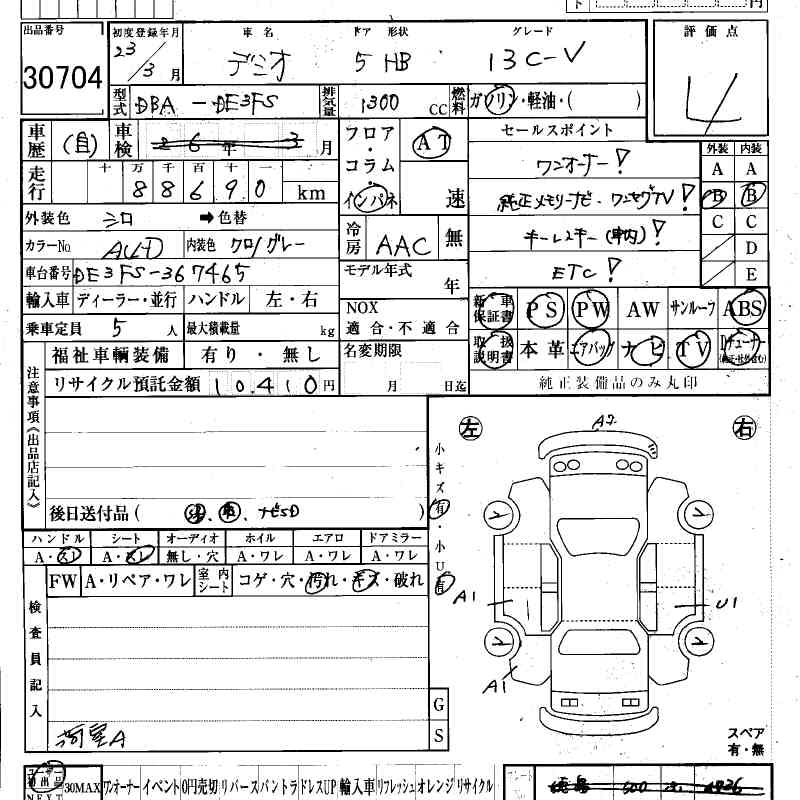 出品番号 初度登録年月 車名 ドア 形状 グレード 評価点
30704 23/3月 デミオ 5 HB 13C-V 4
型式 DBA-DE3FS 排気量 1300 CC 燃料 ガソリン・軽油・( )
車歴 (自) 車検 26年3月 フロア・コラム・インパネ AT 速 セールスポイント 外装 内装
ワンオーナー! A A
走行 十万千百十一 88690 km 純正メモリーナビ・ワンセグTV! B B
外装色 シロ ➡色替 冷房 AAC 無 キーレスキー(車内)! C C
カラーNo A4D 内装色 クロ/グレー D
車台番号 DE3FS-367465 モデル年式 年 ETC! E
輸入車 ディーラー・並行 ハンドル 左・右 NOX 適合・不適合 新車保証書 PS PW AW サンルーフ ABS
乗車定員 5人 最大積載量 kg 取扱説明書 本革 エアバッグ ナビ TV
福祉車輌装備 有り・無し 名変期限 月 日迄 純正装備品のみ丸印
リサイクル預託金額 10,410円
注意事項《出品店記入》
左 右
A2
後日送付品( 、 、ナビSD )
小キズ有・小U有
ハンドル シート オーディオ ホイル エアロ ドアミラー
A・スレ A・スレ 無し・穴 A・ワレ A・ワレ A・ワレ
FW A・リペア・ワレ 室内シート コゲ・穴・汚れ・キズ・破れ
A1 U1
検査員記入
A1
G
S
スペア
有・無
30MAX ワンオーナー イベント 0円売切 リバース パントラ ドレスUP 輸入車 リフレッシュ オレンジ リサイクル